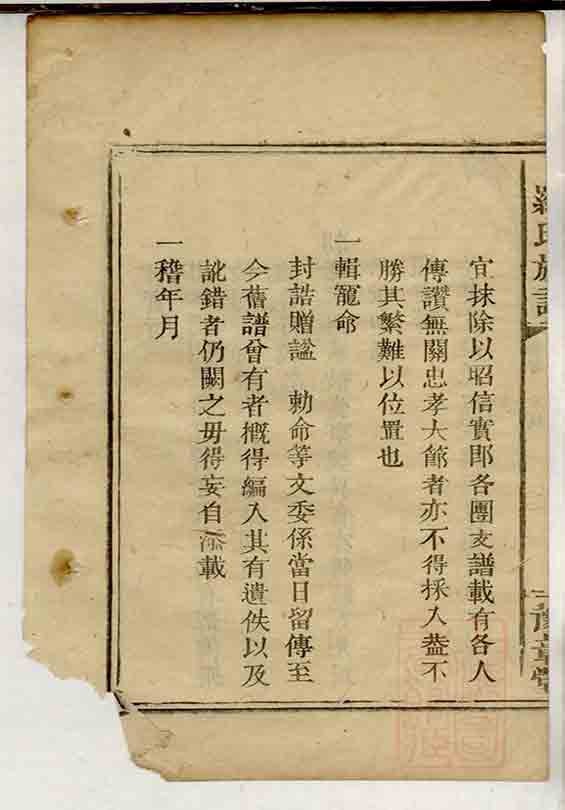 羅氏族譜
豫章堂
宜抹除以昭信實即各團支譜載有各人
傳讚無關忠孝大節者亦不得採入葢不
勝其繁難以位置也
一輯寵命
封誥贈諡 勅命等文委係當日留傳至
今舊譜曾有者概得編入其有遺佚以及
訛錯者仍闕之毋得妄自添載
一稽年月